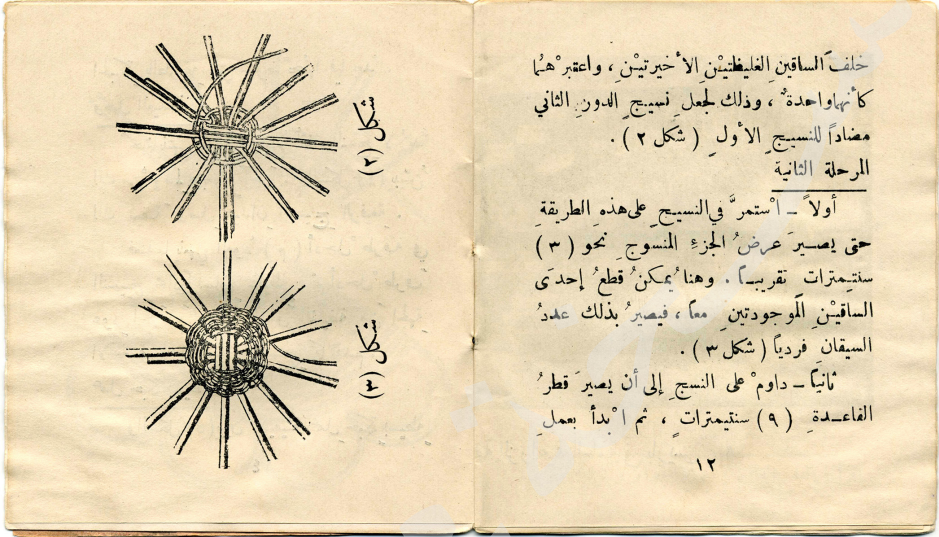 خلفَ الساقينِ الغليظتيْنِ الأخيرتيْنِ ، واعتبرْهُما
كأنهما واحدةٌ ، وذلك لجعلِ نسيجِ الدورِ الثاني
مضاداً للنسيجِ الأولِ ( شكل ٢ ) .
المرحلة الثانية
أولاً – اسْتمرَّ في النسيجِ على هذهِ الطريقةِ
حتى يصيرَ عرضُ الجزءِ المنسوجِ نحو ( ٣ )
سنتيمترات تقريبـاً . وهنا يُمكنُ قطعُ إحدَى
الساقيْنِ المَوجودتينِ معاً ، فيصيرُ بذلك عددُ
السيقانِ فردياً ( شكل ٣ ) .
ثانياً – داومْ على النسجِ إلى أن يصيرَ قطرُ
القاعـدةِ ( ٩ ) سنتيمتراتٍ ، ثم ابْدأ بعملِ
١٢
شكل (٢)
شكل (٣)